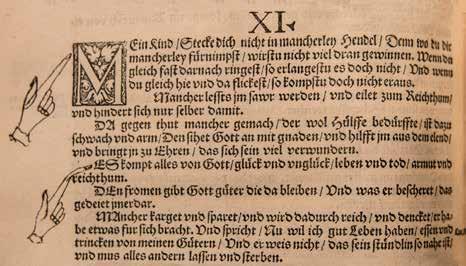 XI.
MEin Kind / Stecke dich nicht in mancherley Hendel / Denn wo du dir
mancherley fürnimpst / wirstu nicht viel dran gewinnen. Wenn du
gleich fast darnach ringest / so erlangestu es doch nicht / Und wenn
du gleich hie und da flickest / so kompstu doch nicht eraus.
Mancher lessts jm sawr werden / und eilet zum Reichthum /
und hindert sich nur selber damit.
DA gegen thut mancher gemach / der wol Hülffe bedürffte / ist dazu
schwach und arm / Den sihet Gott an mit gnaden / und hilfft jm aus dem elend /
und bringt jn zu Ehren / das sich sein viel verwundern.
ES kompt alles von Gott / glück und unglück / leben und tod / armut und
reichthum.
DEn fromen gibt Gott güter die da bleiben / Und was er bescheret / das
gedeiet jmerdar.
MAncher karget und sparet / und wird dadurch reich / und dencket / er ha-
be etwas für sich bracht. Und spricht / Nu wil ich gut Leben haben / essen und
trincken von meinen Gütern / Und er weis nicht / das sein stündlin so nahe ist /
und mus alles andern lassen und sterben.